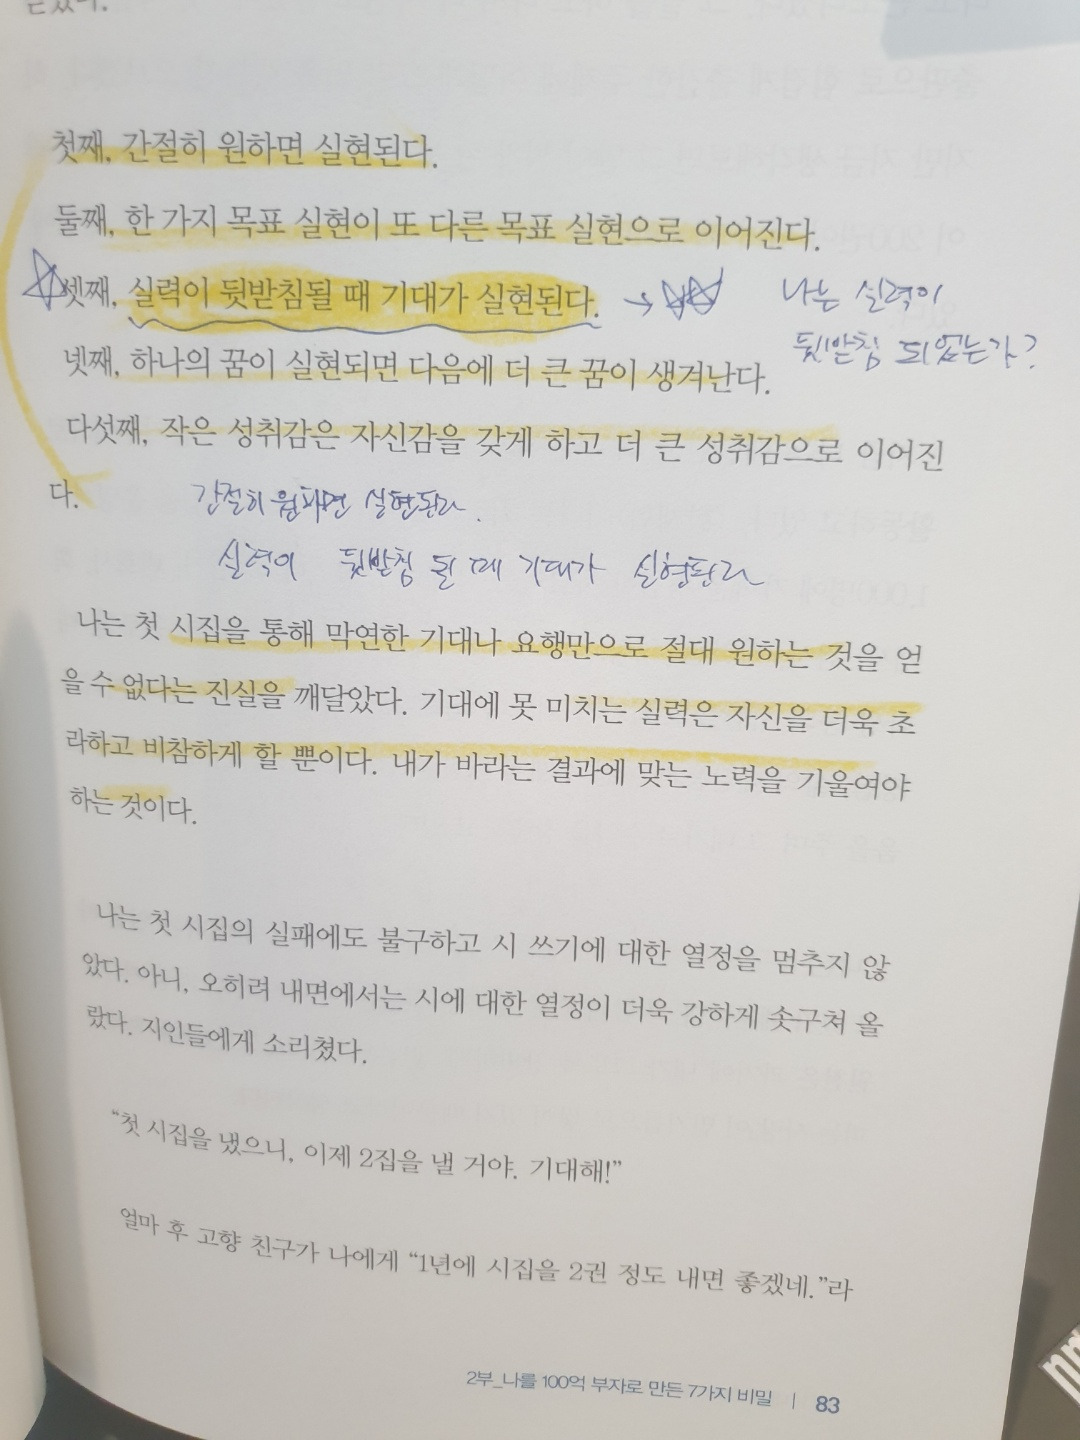 첫째, 간절히 원하면 실현된다.
둘째, 한 가지 목표 실현이 또 다른 목표 실현으로 이어진다.
셋째, 실력이 뒷받침될 때 기대가 실현된다. →
나는 실력이
뒷받침 되었는가?
넷째, 하나의 꿈이 실현되면 다음에 더 큰 꿈이 생겨난다.
다섯째, 작은 성취감은 자신감을 갖게 하고 더 큰 성취감으로 이어진
다.
간절히 원하면 실현된다.
실력이 뒷받침 될 때 기대가 실현된다
나는 첫 시집을 통해 막연한 기대나 요행만으로 절대 원하는 것을 얻
을 수 없다는 진실을 깨달았다. 기대에 못 미치는 실력은 자신을 더욱 초
라하고 비참하게 할 뿐이다. 내가 바라는 결과에 맞는 노력을 기울여야
하는 것이다.
나는 첫 시집의 실패에도 불구하고 시 쓰기에 대한 열정을 멈추지 않
았다. 아니, 오히려 내면에서는 시에 대한 열정이 더욱 강하게 솟구쳐 올
랐다. 지인들에게 소리쳤다.
“첫 시집을 냈으니, 이제 2집을 낼 거야. 기대해!”
얼마 후 고향 친구가 나에게 “1년에 시집을 2권 정도 내면 좋겠네.”라
2부_나를 100억 부자로 만든 7가지 비밀 | 83